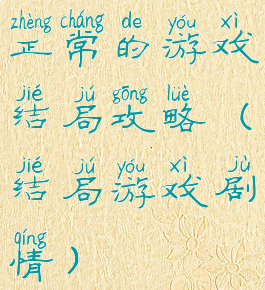 zhèng cháng de yóu xì
正常的游戏
jié jú gōng lüè
结局攻略（
jié jú yóu xì jù
结局游戏剧
qíng
情）